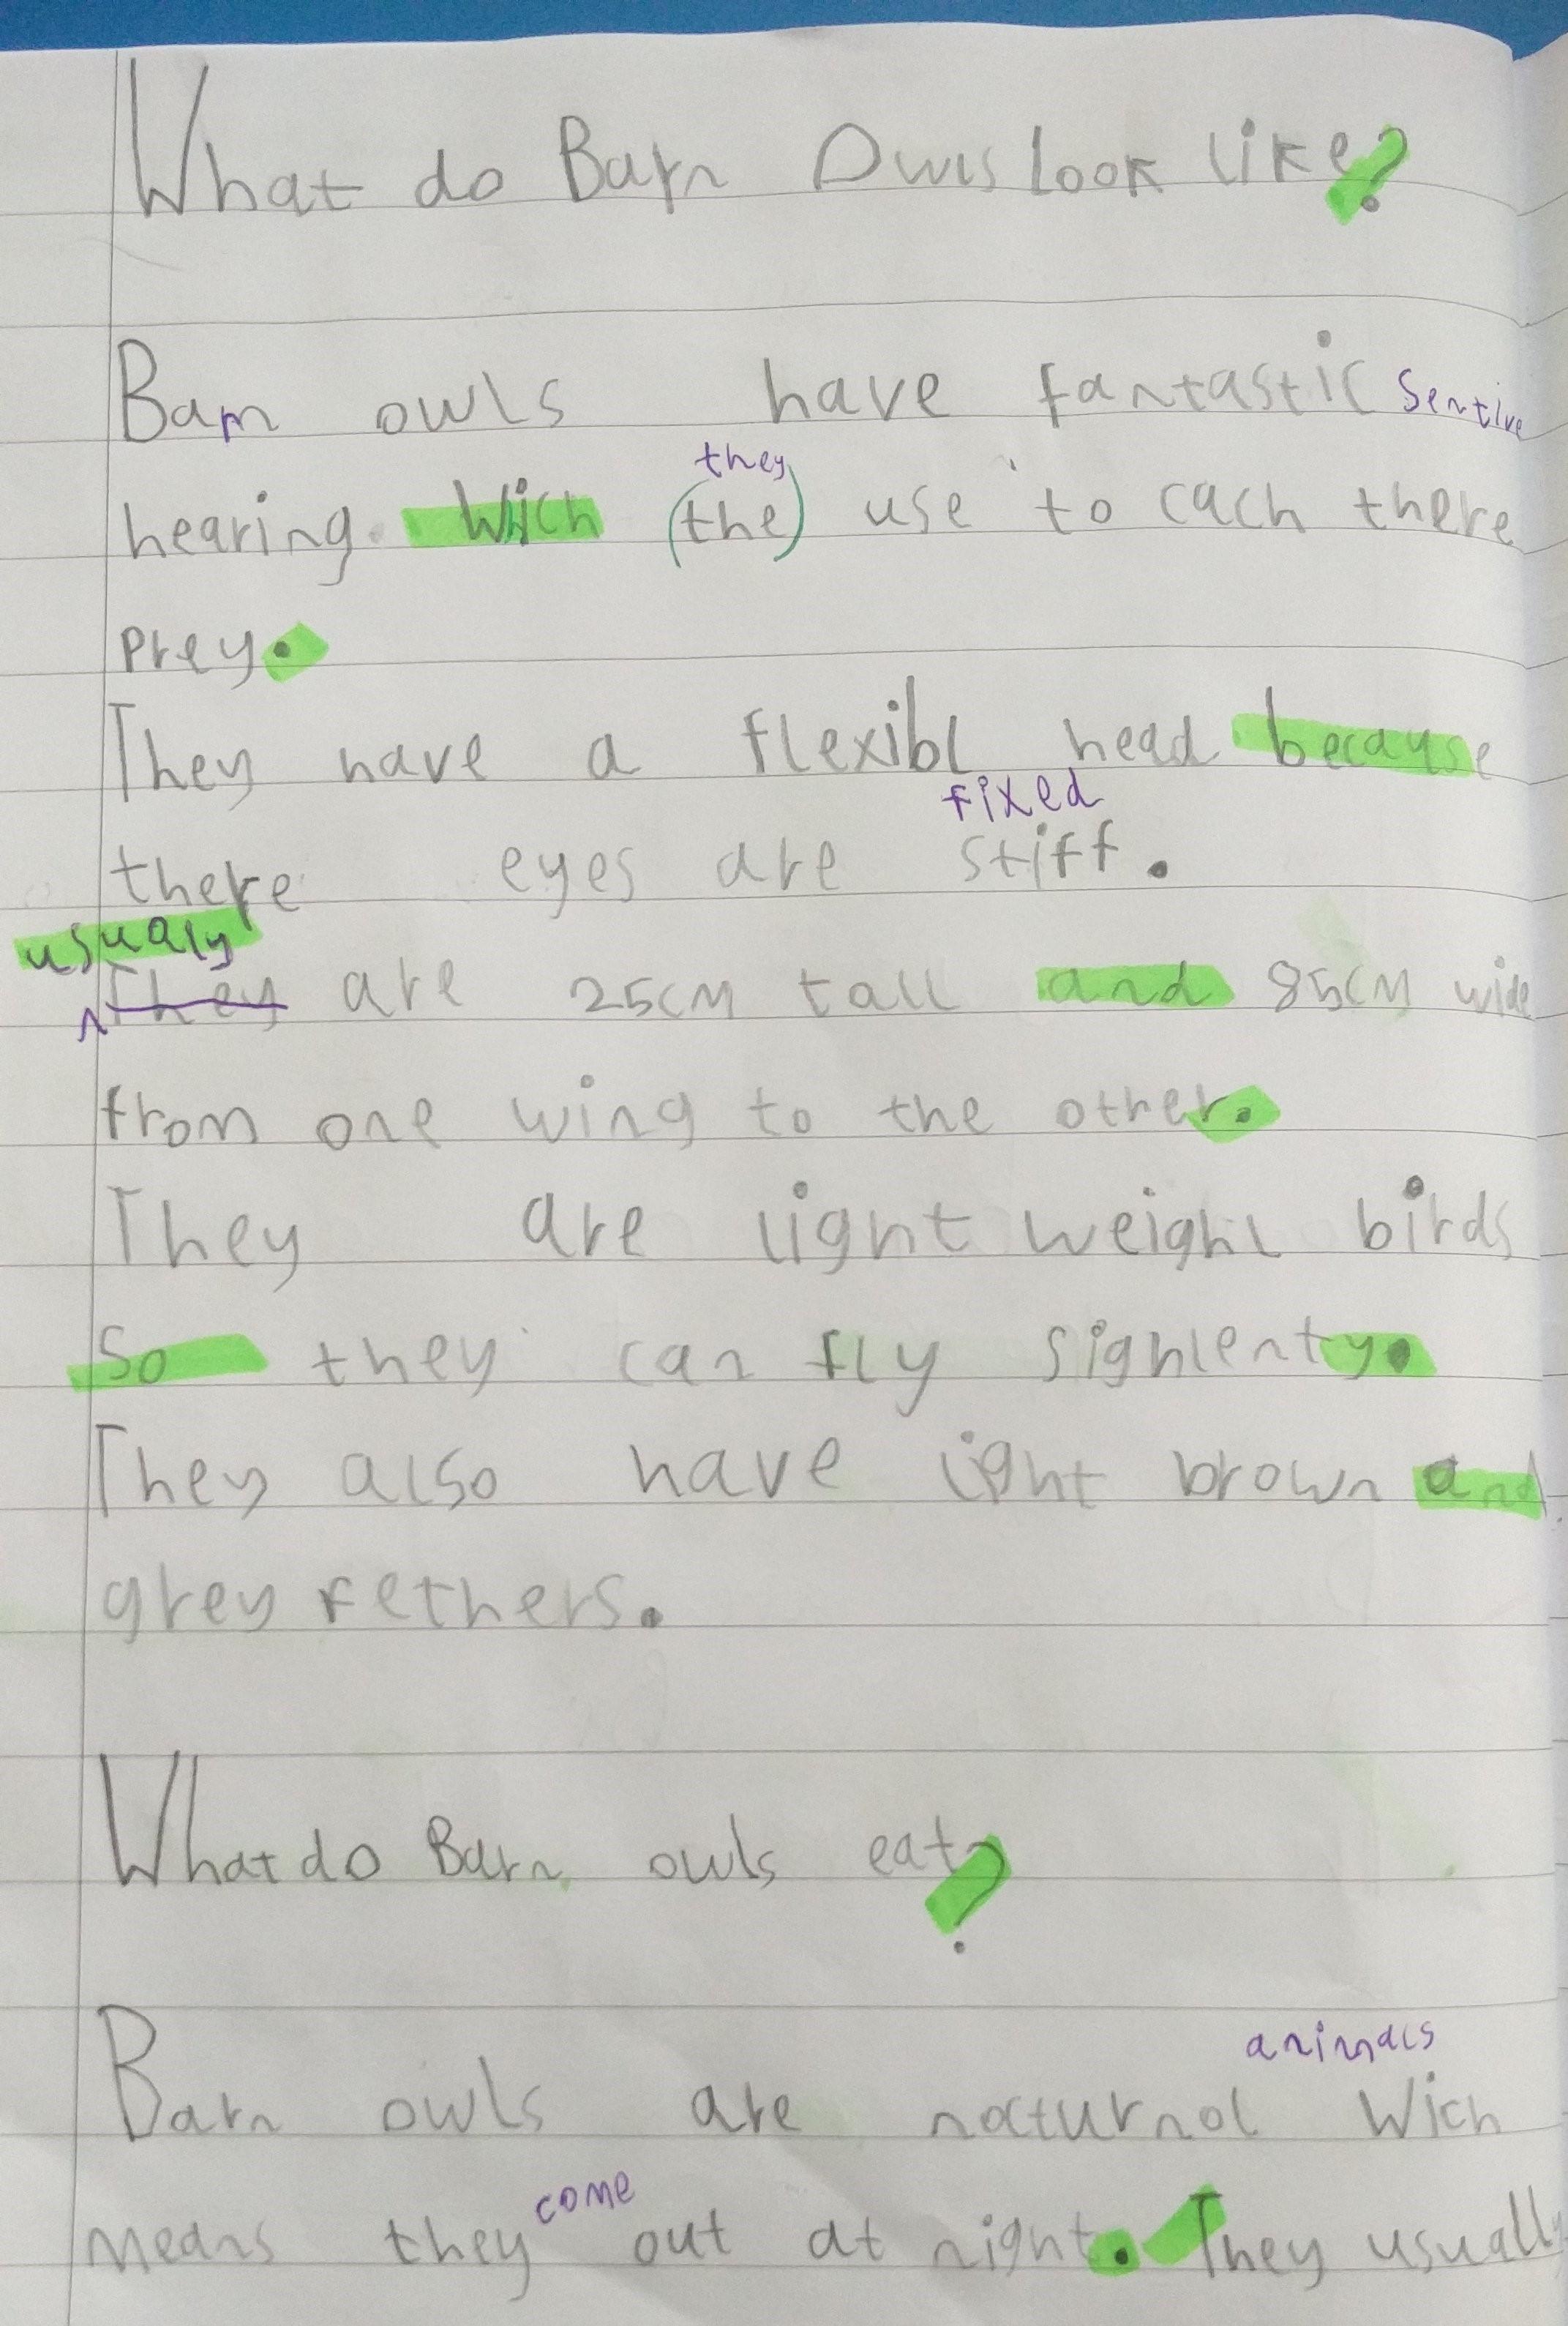 What do Barn Owls look like?
Barn owls have fantastic Sentive
they
hearing. Wich (the) use to cach there
prey.
They have a flexibl head because
fixed
there eyes are stiff.
usualy
They are 25cm tall and 85cm wide
from one wing to the other.
They are light weight birds
So they can fly sighlenty.
They also have light brown and
grey fethers.
What do Barn owls eat?
animals
Barn owls are nocturnol Wich
come
means they out at night. They usually